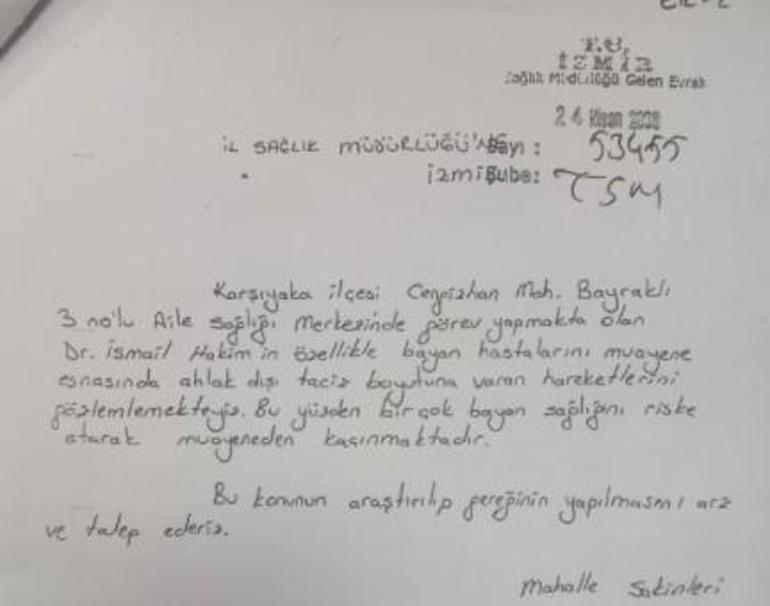 T.C.
İZMİR
Sağlık Müdürlüğü Gelen Evrak
24 Nisan 2008
İL SAĞLIK MÜDÜRLÜĞÜ'NE Sayı : 53455
İzmir Şube: TSM
Karşıyaka ilçesi Cengizhan Mah. Bayraklı
3 no'lu Aile Sağlığı Merkezinde görev yapmakta olan
Dr. İsmail Hakim'in özellikle bayan hastalarını muayene
esnasında ahlak dışı taciz boyutuna varan hareketlerini
gözlemlemekteyiz. Bu yüzden bir çok bayan sağlığını riske
atarak muayeneden kaçınmaktadır.
Bu konunun araştırılıp gereğinin yapılmasını arz
ve talep ederiz.
Mahalle Sakinleri